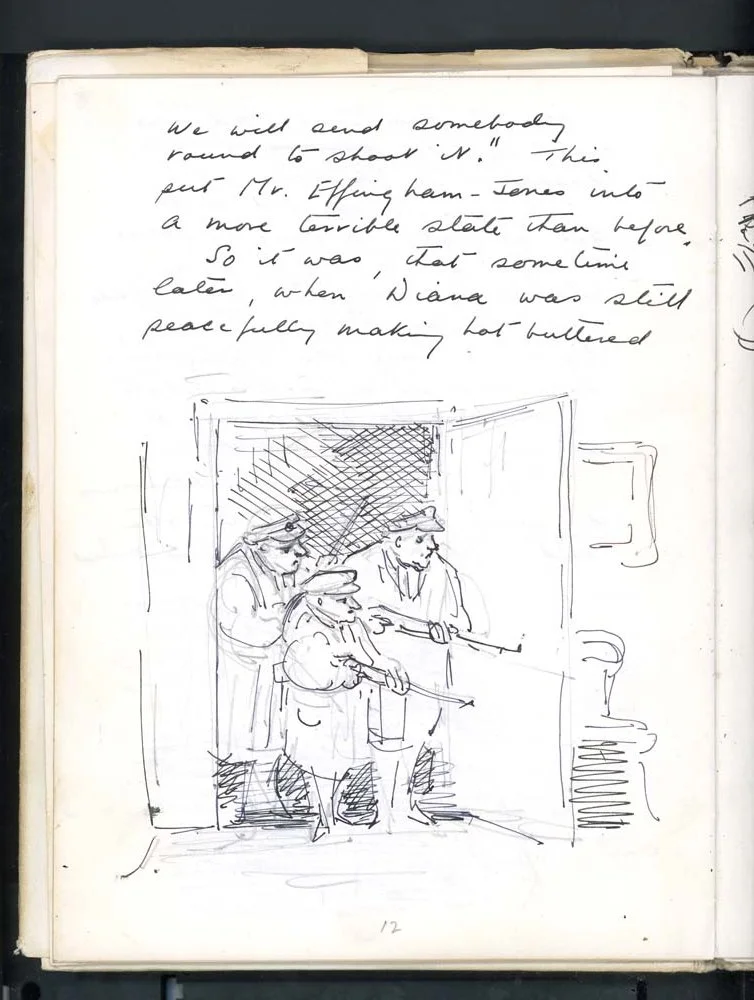 We will send somebody
round to shoot it." This
put Mr. Effingham-Jones into
a more terrible state than before.
So it was, that sometime
later, when Diana was still
peacefully making hot buttered
12